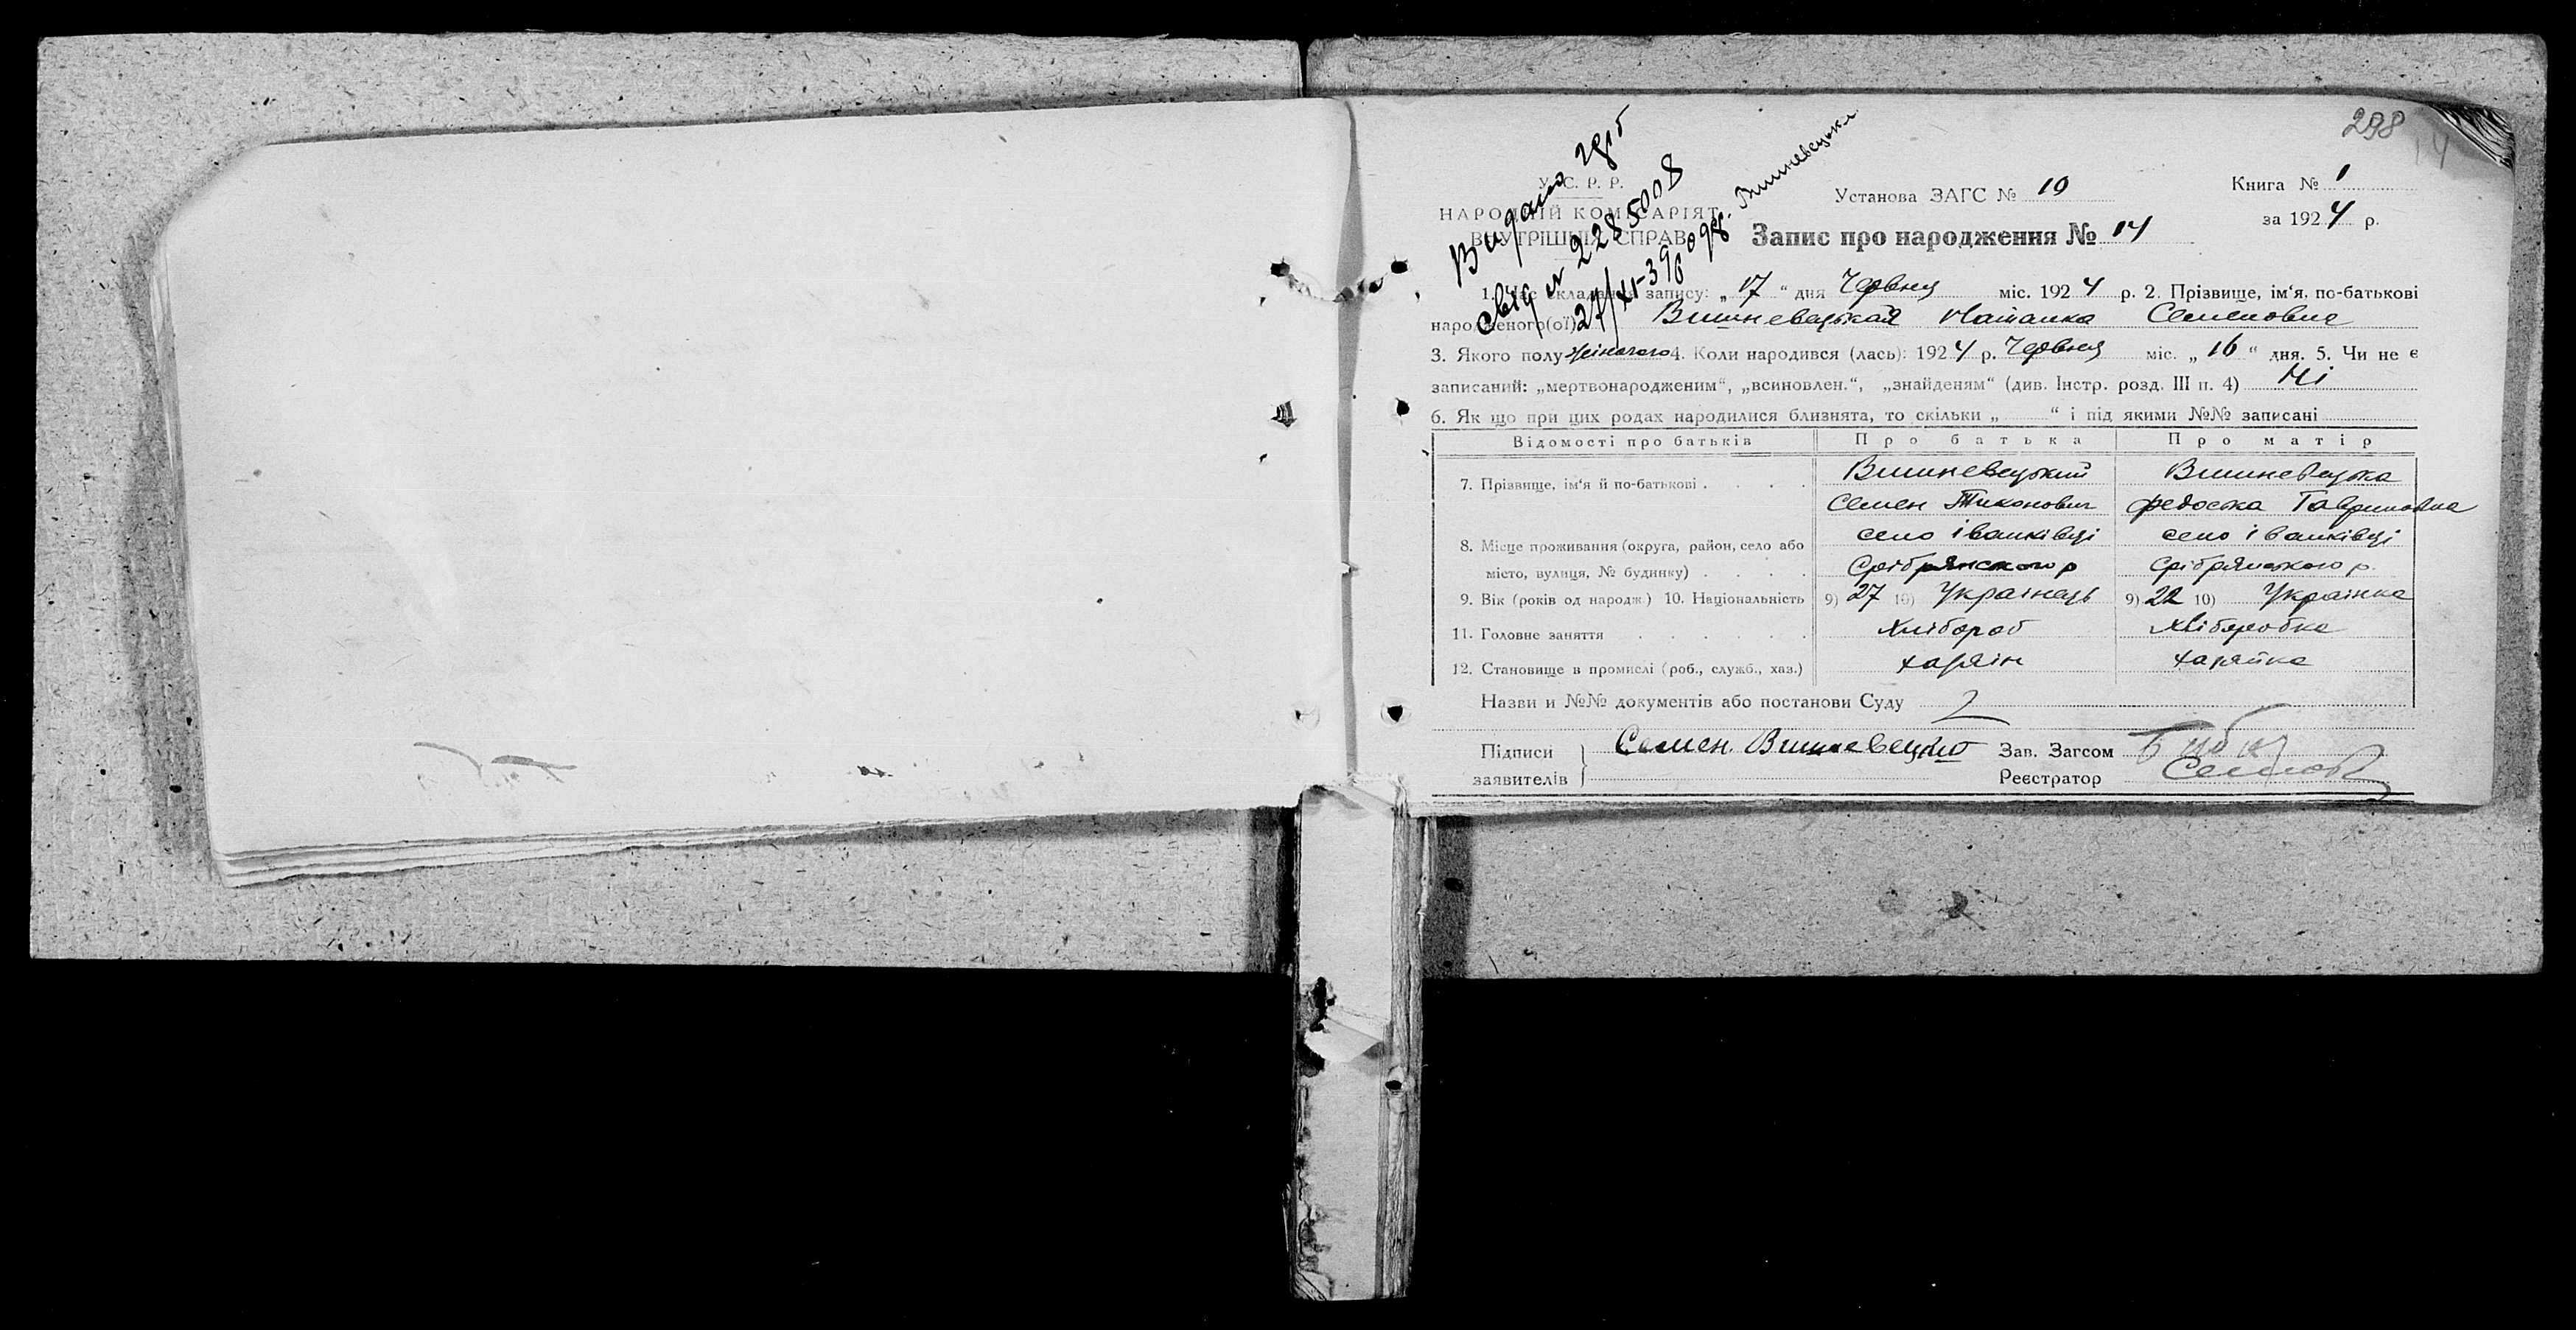 298
14
Видано
свід № 2285008
27/XI-39
Вишневецька
У. С. Р. Р.
НАРОДНІЙ КОМІСАРІЯТ
ВНУТРІШНІХ СПРАВ
Установа ЗАГС № 10
Книга № 1
за 1924 р.
Запис про народження № 14
1. Час складання запису: „17“ дня Червня міс. 1924 р. 2. Прізвище, ім‘я, по-батькові
народженого(ої) Вишневецькая Наталка Семеновна
3. Якого полу жіночого 4. Коли народився (лась): 1924 р. Червня міс. „16“ дня. 5. Чи не є
записаний: „мертвонародженим“, „всиновлен.“, „знайденям“ (див. Інстр. розд. III п. 4) Ні
6. Як що при цих родах народилися близнята, то скільки „ “ і під якими №№ записані
Відомості про батьків Про батька Про матір
7. Прізвище, ім‘я й по-батькові Вишневецький Вишневецька
Семен Тихонович Федоська Гавриловна
8. Місце проживання (округа, район, село або село іванківці село іванківці
місто, вулиця, № будинку) Срібрянського р Срібрянського р.
9. Вік (років од народж.) 10. Національність 9) 27 10) Українець 9) 22 10) Українка
11. Головне заняття Хлібороб Хліборобка
12. Становище в промислі (роб., служб., хаз.) хазяїн хазяйка
Назви и №№ документів або постанови Суду
Підписи Семен Вишневецкий Зав. Загсом
заявителів Реєстратор